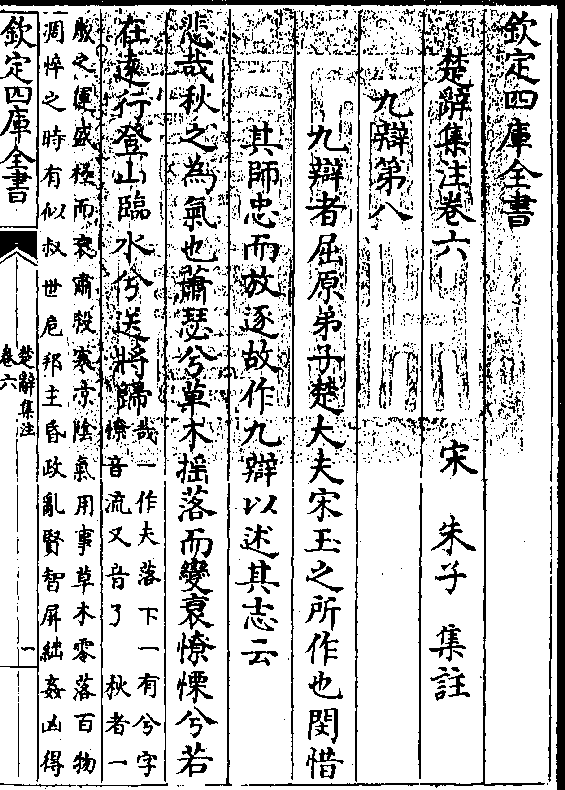 欽定四庫全書
楚辭集注卷六
宋 朱子 集註
九辯第八
九辯者屈原弟子楚大夫宋玉之所作也閔惜
其師忠而放逐故作九辯以述其志云
悲哉秋之為氣也蕭瑟兮草木揺落而變衰憭慄兮若
在逺行登山臨水兮送將歸
哉一作夫落下一有兮字
憭音流又音了 秋者一
歳之運盛極而衰肅殺寒凉隂氣用事草木零落百物
凋悴之時有似叔世危邦主昏政亂賢智屏絀姦凶得
欽定四庫全書
楚辭集注
卷六
一